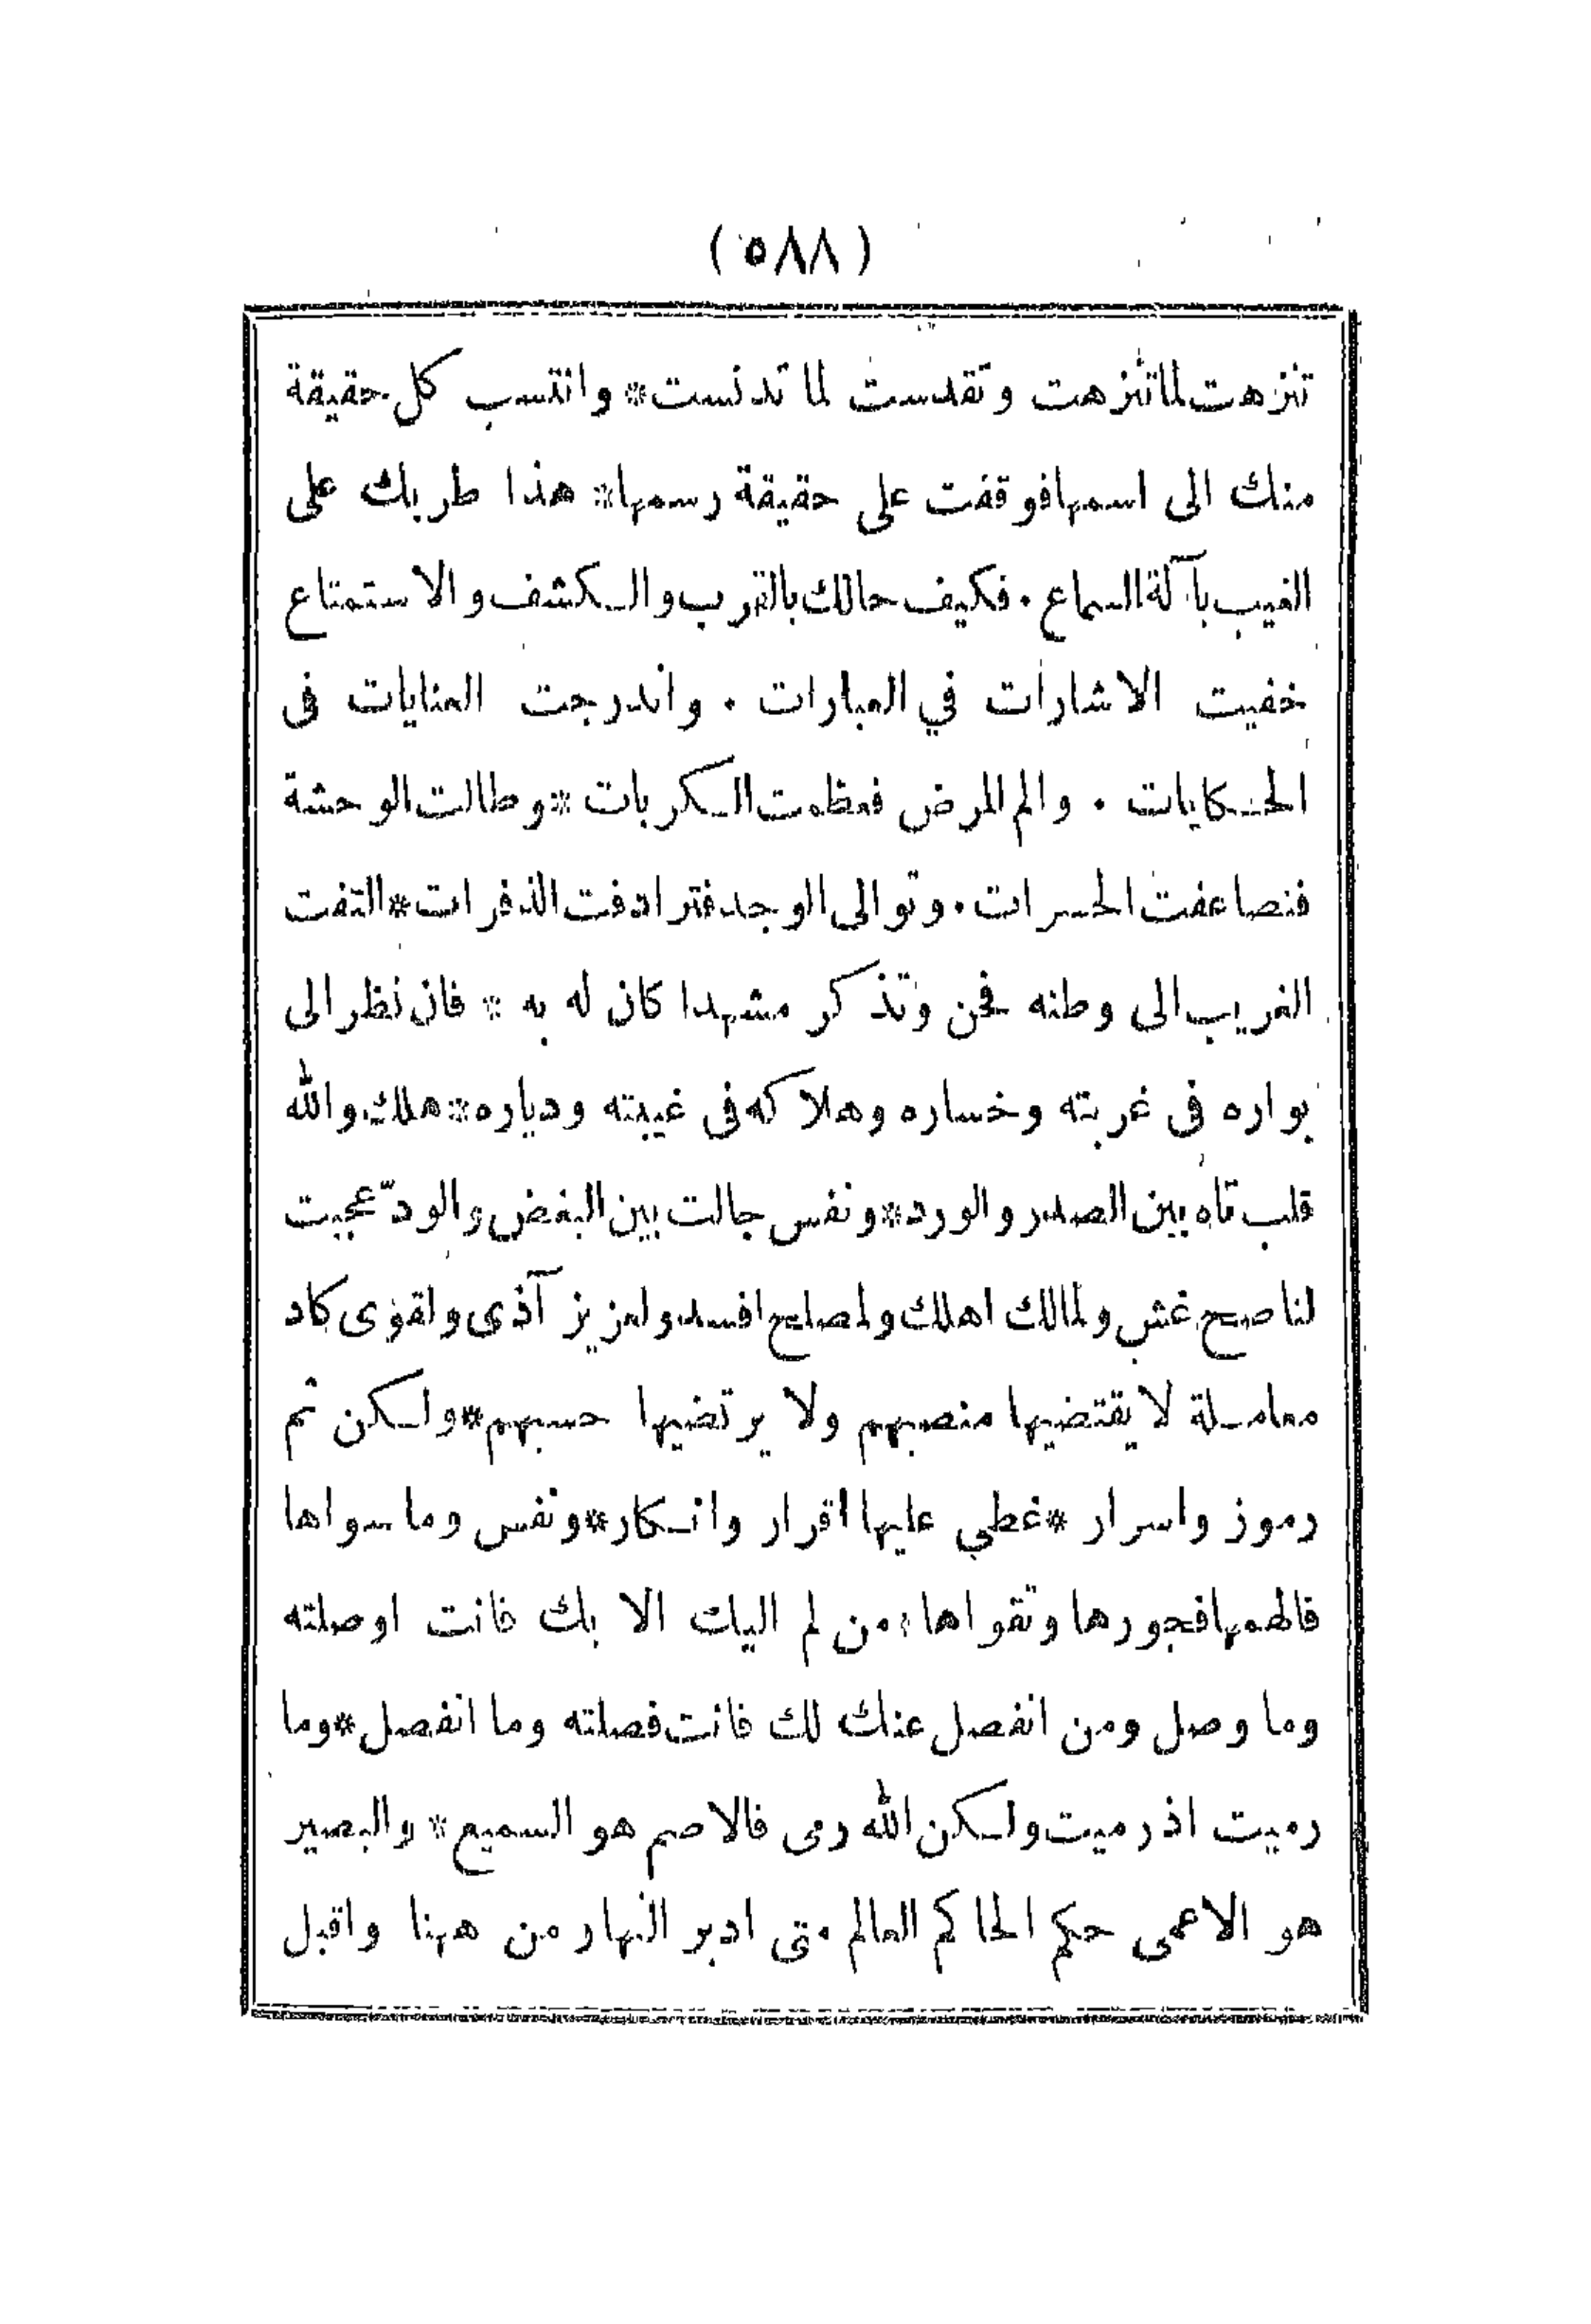 (٥٨٨)
تنزهت لما تنزهت وتقدست لما تدنست* وانتسب كل حقيقة
منك الى اسمها فوقفت على حقيقة رسمها* هذا طربك على
الغيب بآلة السماع. فكيف حالك بالقرب والكشف والاستمتاع
خفيت الاشارات في العبارات. واندرجت العنايات فى
الحكايات. والم المرض فعظمت الكربات* وطالت الوحشة
فتضاعفت الحسرات. وتوالى الوجد فترادفت الذفرات* التفت
الغريب الى وطنه فحن وتذكر مشهدا كان له به* فان نظر الى
بواره فى غربته وخساره وهلاكه فى غيبته ودياره* هلك والله
قلب تاه بين الصدر والورد* ونفس جالت بين البغض والودّ عجبت
لناصح غش ولمالك اهلك ولمصلح افسد ولعزيز آذى ولقوى كاد
معاملة لا يقتضيها منصبهم ولا يرتضيها حسبهم* ولكن ثم
رموز واسرار* غطي عليها اقرار وانكار* ونفس وما سواها
فالهمها فجورها وتقواها* من لم اليك الا بك فانت اوصلته
وما وصل ومن انفصل عنك لك فانت فصلته وما انفصل* وما
رميت اذ رميت ولكن الله رمى فالاصم هو السميع* والبصير
هو الاعمى حكم الحاكم العالم متى ادبر النهار من ههنا واقبل